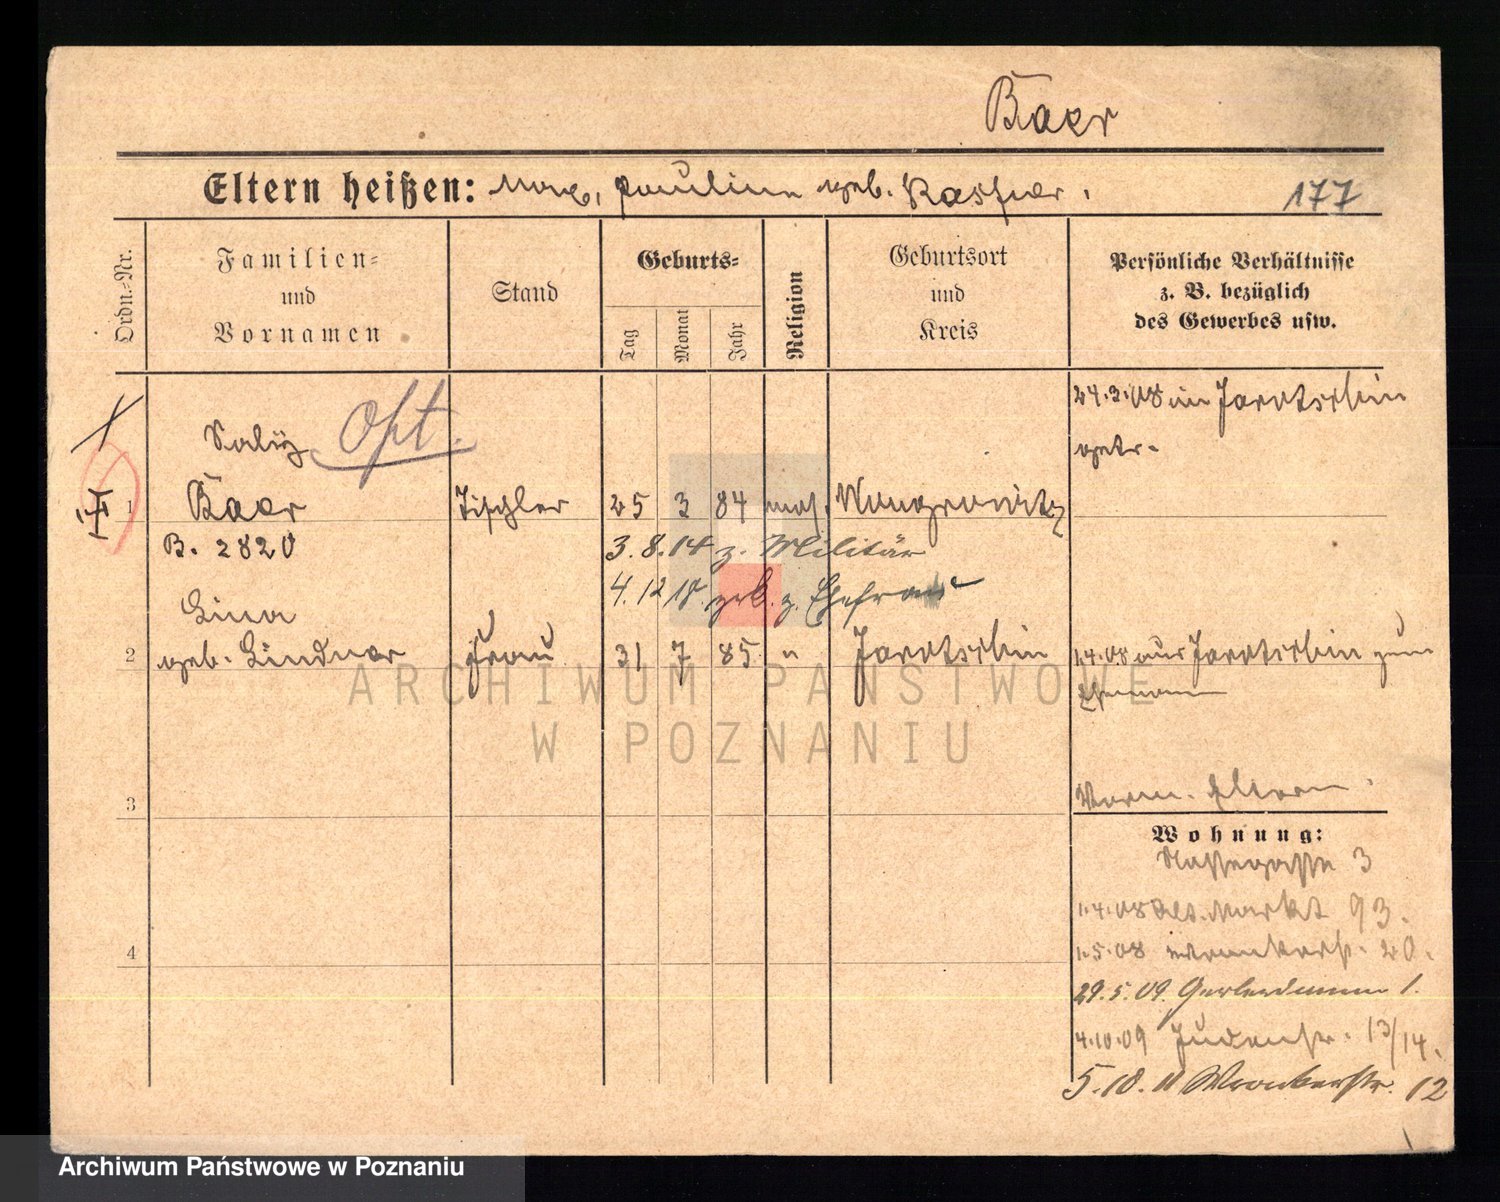 Baer
Eltern heißen: Max, Pauline geb. Kaskar.
177
Ordn.-Nr.
Familien-
und
Vornamen
Stand
Geburts-
Tag
Monat
Jahr
Religion
Geburtsort
und
Kreis
Persönliche Verhältnisse
z. B. bezüglich
des Gewerbes usw.
24.3.08 in Jarotschin
getr.
Opt.
1 Baer Tischler 25 3 84 mos. Wongrowitz
B. 2820 3.8.14 z. Militär
4.12.18 zrk. z. Ehefrau
Lina
2 geb. Lindner Frau 31 7 85 " Jarotschin 1.4.08 aus Jarotschin zum
Ehemann
3 Eltern
Wohnung:
Nassegasse 3
1.4.08 Alt. Markt 93.
4 1.5.08 Wronkerstr. 20.
29.5.09. Gerberdamm 1.
4.10.09 Judenstr. 13/14.
5.10.11 Wronkerstr. 12
ARCHIWUM PAŃSTWOWE
W POZNANIU
Archiwum Państwowe w Poznaniu